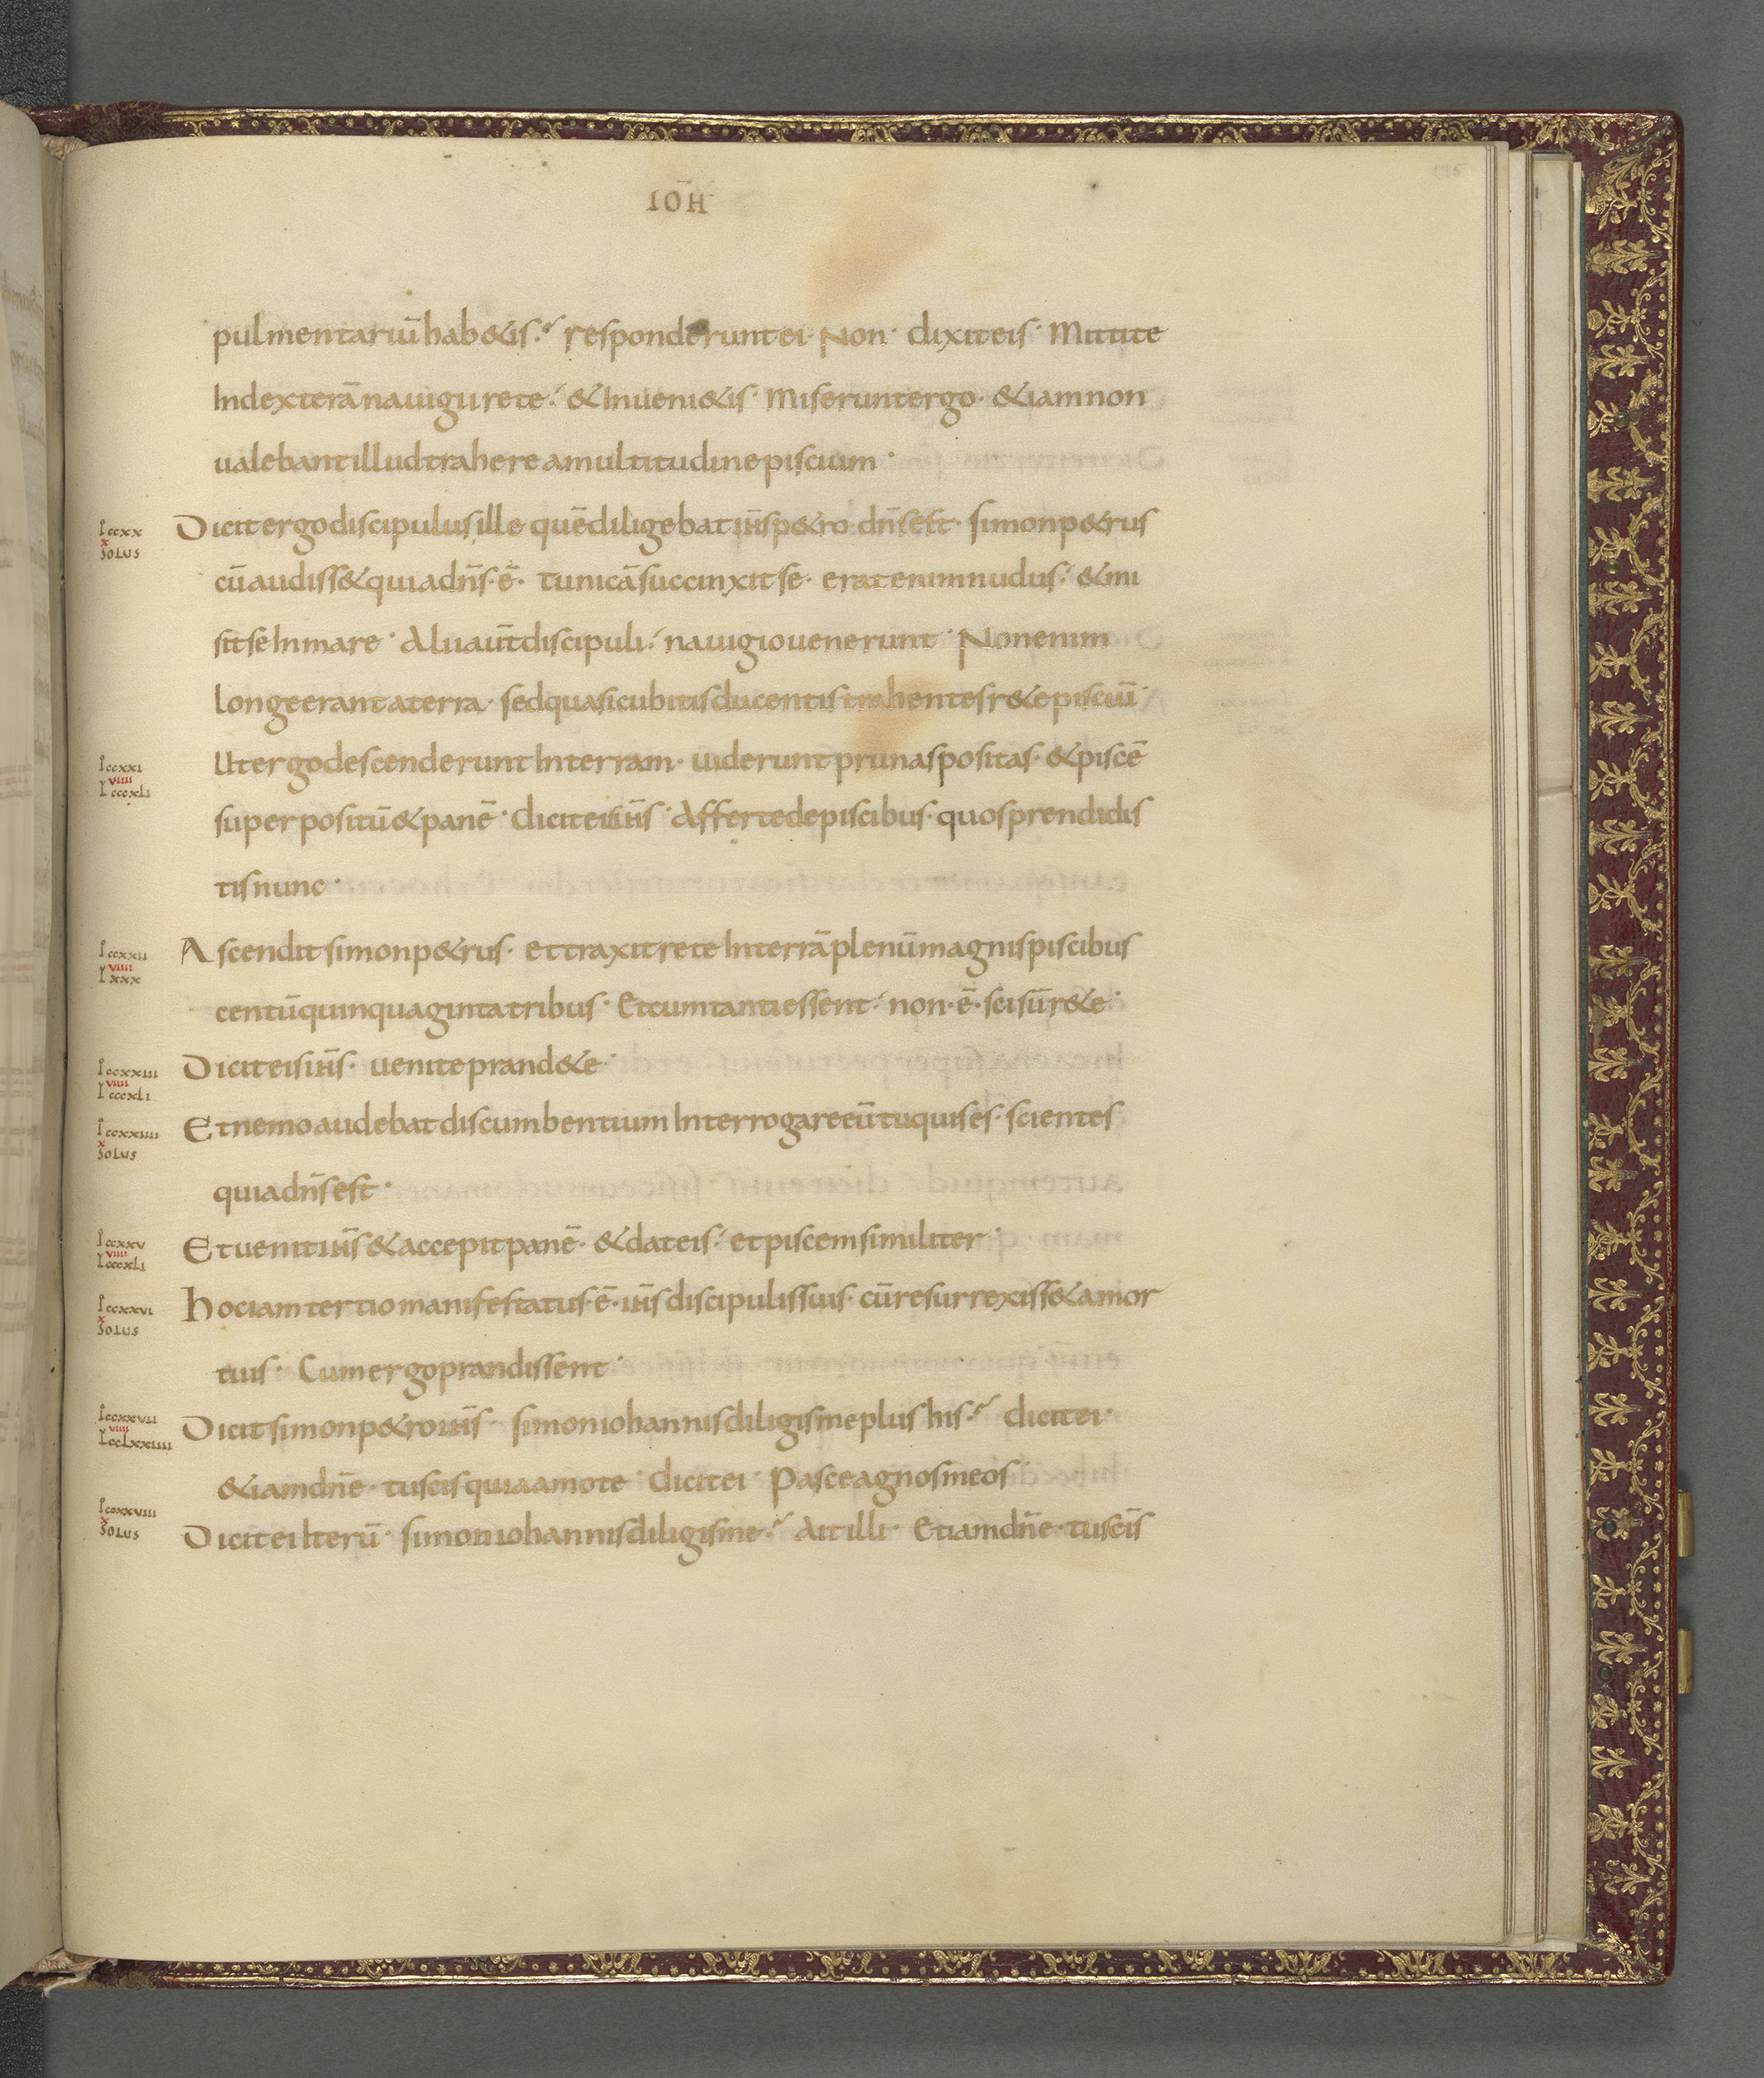 IOH̄
pulmentariū hab&is? responderunt ei. Non. dixit eis. Mittite
In dexterā nauigii rete. & Inueni&is. Miserunt ergo. & iam non
ualebant illud trahere a multitudine piscium.
Iccxx
x
SOLUS
Dicit ergo discipulus ille quē diligebat ih̄s p&ro dn̄s est. simon p&rus
cū audiss& quia dn̄s .ē. tunicā succinxit se. erat enim nudus. & mi
sit se In mare. Alii aūt discipuli. nauigio uenerunt. Non enim
longe erant a terra. sed quasi cubitis ducentis trahentes r&e pisciū.
Iccxxi
viiii
Icccxli
Ut ergo descenderunt In terram. uiderunt prunas positas. & piscē
superpositū & panē. dicit eis ih̄s. Afferte de piscibus. quos prendidis
tis nunc.
Iccxxii
viiii
Ixxx
Ascendit simon p&rus. et traxit rete In terrā plenū magnis piscibus
centū quinquaginta tribus. Et cum tanti essent. non .ē. scisū r&e.
Iccxxiii
viiii
Icccxli
Dicit eis ih̄s. uenite prand&e.
Iccxxiiii
x
SOLUS
Et nemo audebat discumbentium Interrogare eū tu quis es. scientes
quia dn̄s est.
Iccxxv
viiii
Icccxli
Et uenit ih̄s & accepit panē. & dat eis. et piscem similiter.
Iccxxvi
x
SOLUS
Hoc iam tertio manifestatus .ē. ih̄s discipulis suis. cū resurrexiss& a mor
tuis. Cum ergo prandissent.
Iccxxvii
viiii
Icclxxiiii
Dicit simon p&ro ih̄s. simon iohannis diligis me plus his? dicit ei.
&iam dn̄e. tu scis quia amo te. dicit ei. Pasce agnos meos.
Iccxxviii
x
SOLUS
Dicit ei Iterū. simon iohannis diligis me? Ait illi. Etiam dn̄e. tu scis